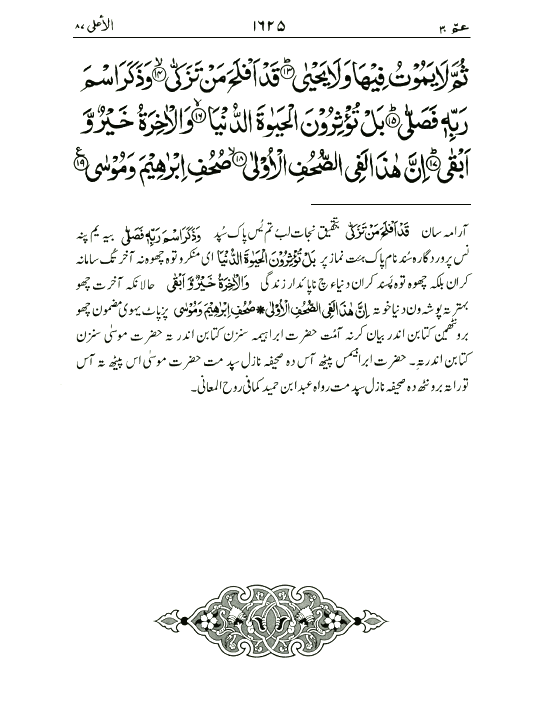 عمّ ۳۰ ۱٦۲۵ الأعلى ۸۷
ثُمَّ لَا يَمُوْتُ فِيْهَا وَلَا يَحْيٰى ۱۳ قَدْ اَفْلَحَ مَنْ تَزَكّٰى ۱۴ وَذَكَرَ اسْمَ
رَبِّهٖ فَصَلّٰى ۱۵ بَلْ تُؤْثِرُوْنَ الْحَيٰوةَ الدُّنْيَا ۱٦ وَالْاٰخِرَةُ خَيْرٌ وَّ
اَبْقٰى ۱۷ اِنَّ هٰذَا لَفِى الصُّحُفِ الْاُوْلٰى ۱۸ صُحُفِ اِبْرٰهِيْمَ وَمُوْسٰى ۱۹
آرامہ سان قَدْ اَفْلَحَ مَنْ تَزَكّٰى بتحقیق نجات لب تم یُس پاک سُپد وَذَكَرَ اسْمَ رَبِّهٖ فَصَلّٰى بیہ یم پنہ
نس پروردگارہ سُند نام پاک ہیت نماز پر بَلْ تُؤْثِرُوْنَ الْحَيٰوةَ الدُّنْيَا ای منکرو توہ چھوہ نہ آخرتک سامانہ
کران بلکہ چھوہ توہ پسند کران دنیاء چ ناپائدار زندگی وَالْاٰخِرَةُ خَيْرٌ وَّ اَبْقٰى حالانکہ آخرت چھو
بہتر تہ پوشہ ون دنیا خوتہ اِنَّ هٰذَا لَفِى الصُّحُفِ الْاُوْلٰى * صُحُفِ اِبْرٰهِيْمَ وَمُوْسٰى پزپاٹ یہوی مضمون چھو
برونٹھمین کتابن اندر بیان کرنہ آمت حضرت ابراہیمہ سنزن کتابن اندر تہ حضرت موسیٰ سنزن
کتابن اندر تہ۔ حضرت ابراہیمس پیٹھ آس دہ صحیفہ نازل سپد مت حضرت موسیٰ اس پیٹھ تہ آس
توراتہ برونٹھ دہ صحیفہ نازل سپد مت رواہ عبد ابن حمید کمافی روح المعانی۔